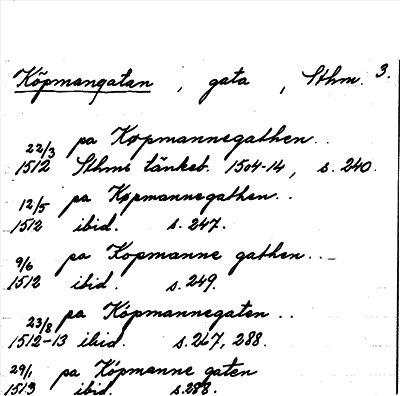 Köpmangatan , gata , Sthm. 3.
22/3 pa Køpmannegathen..
1512 Sthms tänkeb. 1504-14, s. 240.
12/5 pa Køpmannegathen..
1512 ibid. s. 247.
9/6 pa Kopmanne gathen...
1512 ibid. s. 249.
23/8 pa Köpmannegaten ..
1512-13 ibid. s. 267, 288.
29/1 pa Köpmanne gaten
1513 ibid. s. 288.